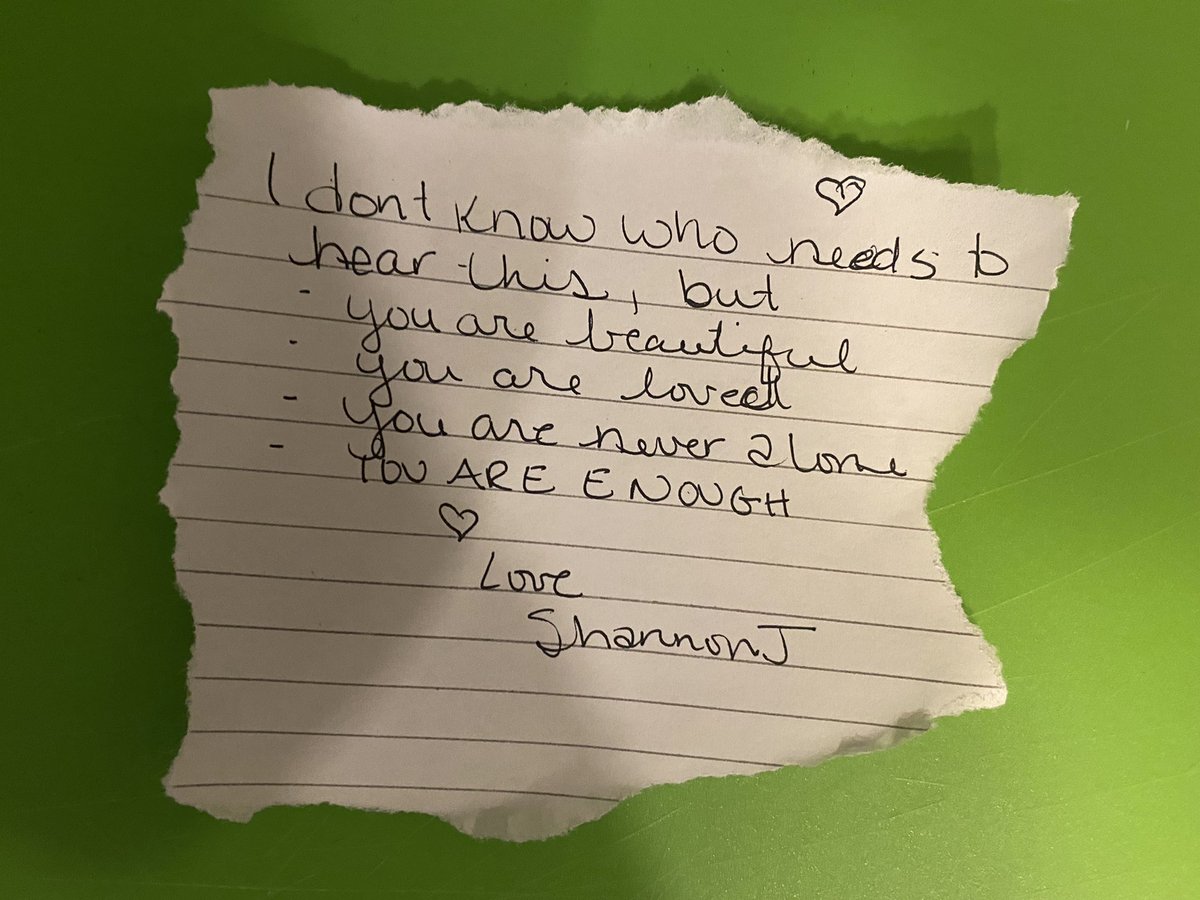 I dont know who needs to
hear this, but
- you are beautiful
- you are loved
- you are never alone
- YOU ARE ENOUGH
Love
Shannon J